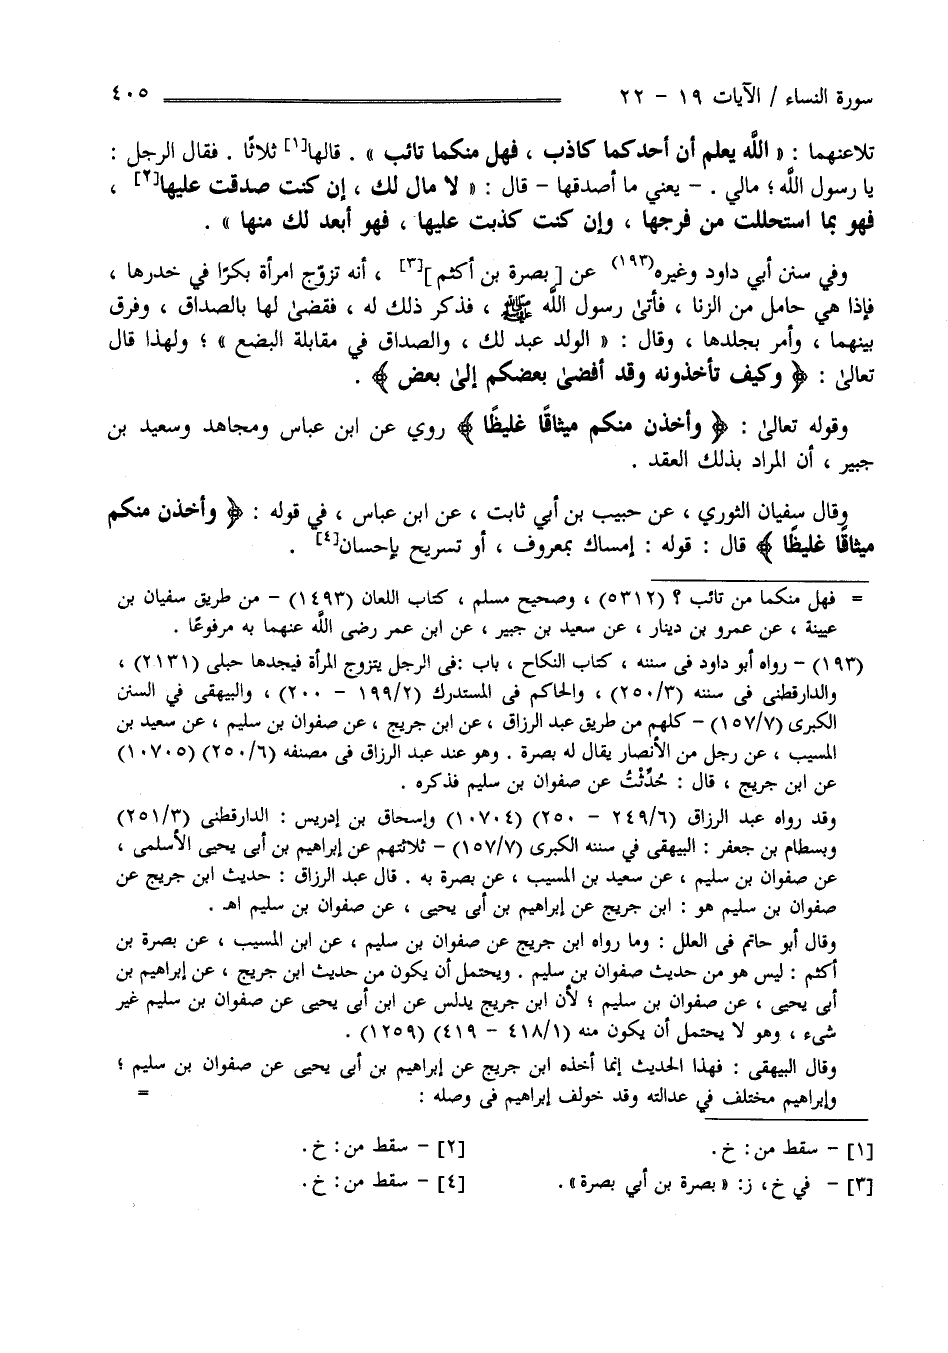 سورة النساء / الآيات ١٩ - ٢٢ ٤٠٥
تلاعنهما : « اللَّه يعلم أن أحدكما كاذب ، فهل منكما تائب » . قالها[١] ثلاثًا . فقال الرجل :
يا رسول اللَّه ؛ مالي . - يعني ما أصدقها - قال : « لا مال لك ، إن كنت صدقت عليها[٢] ،
فهو بما استحللت من فرجها ، وإن كنت كذبت عليها ، فهو أبعد لك منها » .
وفي سنن أبي داود وغيره(١٩٣) عن [بصرة بن أكثم][٣] ، أنه تزوّج امرأة بكرًا في خدرها ،
فإذا هي حامل من الزنا ، فأتىٰ رسول اللَّه ﷺ ، فذكر ذلك له ، فقضىٰ لها بالصداق ، وفرق
بينهما ، وأمر بجلدها ، وقال : « الولد عبد لك ، والصداق في مقابلة البضع » ؛ ولهذا قال
تعالىٰ : ﴿ وكيف تأخذونه وقد أفضىٰ بعضكم إلىٰ بعض ﴾ .
وقوله تعالىٰ : ﴿ وأخذن منكم ميثاقًا غليظًا ﴾ روي عن ابن عباس ومجاهد وسعيد بن
جبير ، أن المراد بذلك العقد .
وقال سفيان الثوري ، عن حبيب بن أبي ثابت ، عن ابن عباس ، في قوله : ﴿ وأخذن منكم
ميثاقًا غليظًا ﴾ قال : قوله : إمساك بمعروف ، أو تسريح بإحسان[٤] .
= فهل منكما من تائب ؟ (٥٣١٢) ، وصحيح مسلم ، كتاب اللعان (١٤٩٣) - من طريق سفيان بن
عيينة ، عن عمرو بن دينار ، عن سعيد بن جبير ، عن ابن عمر رضى اللَّه عنهما به مرفوعًا .
(١٩٣) - رواه أبو داود فى سننه ، كتاب النكاح ، باب :فى الرجل يتزوج المرأة فيجدها حبلى (٢١٣١) ،
والدارقطنى فى سننه (٢٥٠/٣) ، والحاكم فى المستدرك (١٩٩/٢ - ٢٠٠) ، والبيهقى في السنن
الكبرى (١٥٧/٧) - كلهم من طريق عبد الرزاق ، عن ابن جريج ، عن صفوان بن سليم ، عن سعيد بن
المسيب ، عن رجل من الأنصار يقال له بصرة . وهو عند عبد الرزاق فى مصنفه (٢٥٠/٦) (١٠٧٠٥)
عن ابن جريج ، قال : حُدِّثْتُ عن صفوان بن سليم فذكره .
وقد رواه عبد الرزاق (٢٤٩/٦ - ٢٥٠) (١٠٧٠٤) وإسحاق بن إدريس : الدارقطنى (٢٥١/٣)
وبسطام بن جعفر : البيهقى في سننه الكبرى (١٥٧/٧) - ثلاثتهم عن إبراهيم بن أبى يحيى الأسلمى ،
عن صفوان بن سليم ، عن سعيد بن المسيب ، عن بصرة به . قال عبد الرزاق : حديث ابن جريج عن
صفوان بن سليم هو : ابن جريج عن إبراهيم بن أبى يحيى ، عن صفوان بن سليم اهـ .
وقال أبو حاتم فى العلل : وما رواه ابن جريج عن صفوان بن سليم ، عن ابن المسيب ، عن بصرة بن
أكثم : ليس هو من حديث صفوان بن سليم . ويحتمل أن يكون من حديث ابن جريج ، عن إبراهيم بن
أبى يحيى ، عن صفوان بن سليم ؛ لأن ابن جريج يدلس عن ابن أبى يحيى عن صفوان بن سليم غير
شىء ، وهو لا يحتمل أن يكون منه (٤١٨/١ - ٤١٩) (١٢٥٩) .
وقال البيهقى : فهذا الحديث إنما أخذه ابن جريج عن إبراهيم بن أبى يحيى عن صفوان بن سليم ؛
وإبراهيم مختلف في عدالته وقد خولف إبراهيم فى وصله : =
[١] - سقط من: خ. [٢] - سقط من: خ.
[٣] - في خ، ز: «بصرة بن أبي بصرة». [٤] - سقط من: خ.